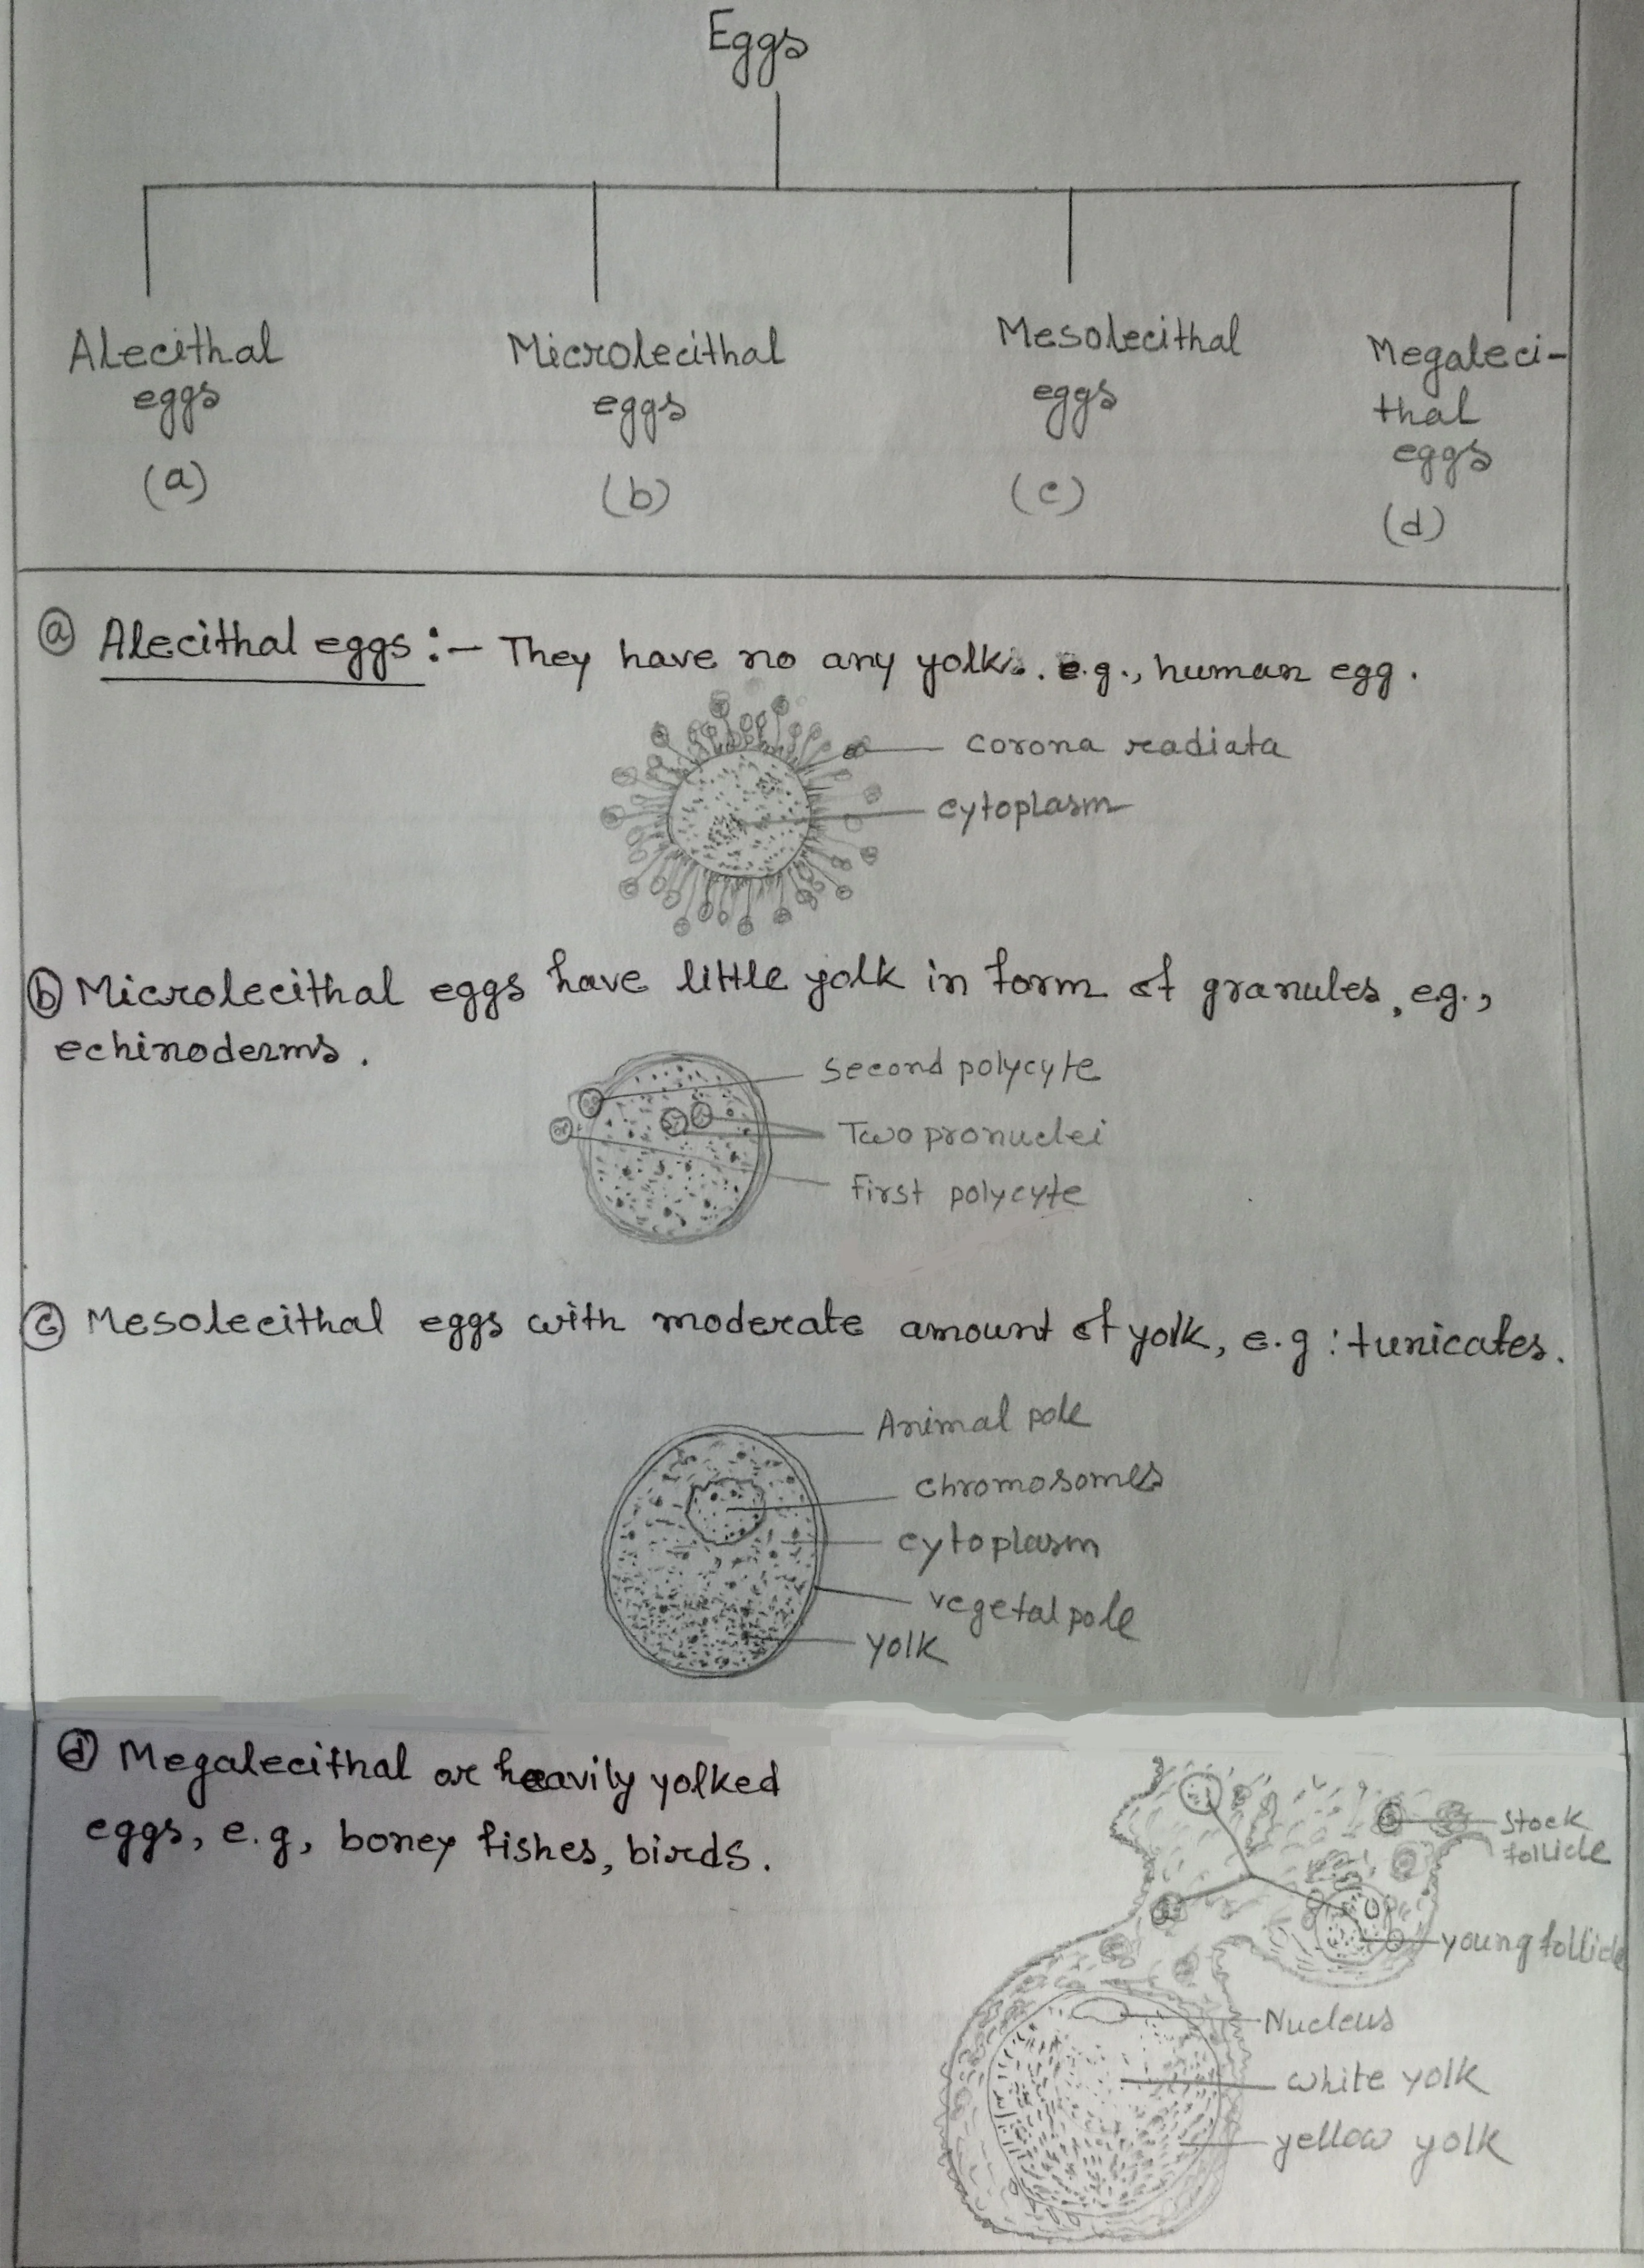 Eggs
Alecithal
eggs
(a)
Microlecithal
eggs
(b)
Mesolecithal
eggs
(c)
Megaleci-
thal
eggs
(d)
(a) Alecithal eggs :- They have no any yolk. e.g., human egg.
corona readiata
cytoplasm
(b) Microlecithal eggs have little yolk in form of granules, e.g.,
echinoderms.
Second polycyte
Two pronuclei
First polycyte
(c) Mesolecithal eggs with moderate amount of yolk, e.g : tunicates.
Animal pole
chromosomes
cytoplasm
vegetal pole
yolk
(d) Megalecithal or heavily yolked
eggs, e.g, boney fishes, birds.
Stock
follicle
young follicle
Nucleus
white yolk
yellow yolk